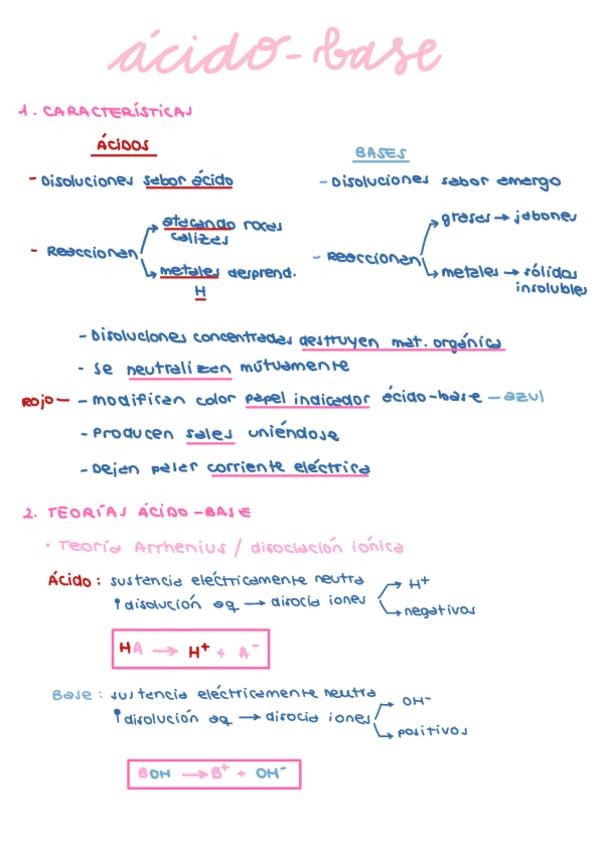 ácido-base
1. CARACTERÍSTICAS
ÁCIDOS
- Disoluciones sabor ácido
- Reaccionan
atacando rocas
calizas
metales desprend.
H
BASES
- Disoluciones sabor amargo
- Reaccionan
grasas → jabones
metales → sólidos
insolubles
- Disoluciones concentradas destruyen mat. orgánica
- Se neutralizan mútuamente
ROJO — - modifican color papel indicador ácido-base — azul
- Producen sales uniéndose
- Dejan pasar corriente eléctrica
2. TEORÍAS ÁCIDO-BASE
· Teoría Arrhenius / disociación iónica
Ácido: sustancia eléctricamente neutra
disolución aq → disocia iones
H+
negativos
HA → H+ + A-
Base: sustancia eléctricamente neutra
disolución aq → disocia iones
OH-
positivos
BOH → B+ + OH-